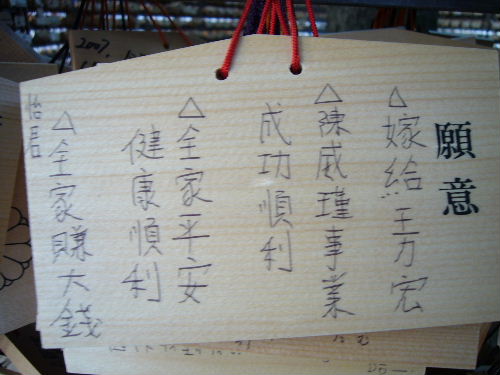 願意
△嫁給王力宏
△陳威瑾事業
成功順利
△全家平安
健康順利
△全家賺大錢
怡君
2007.